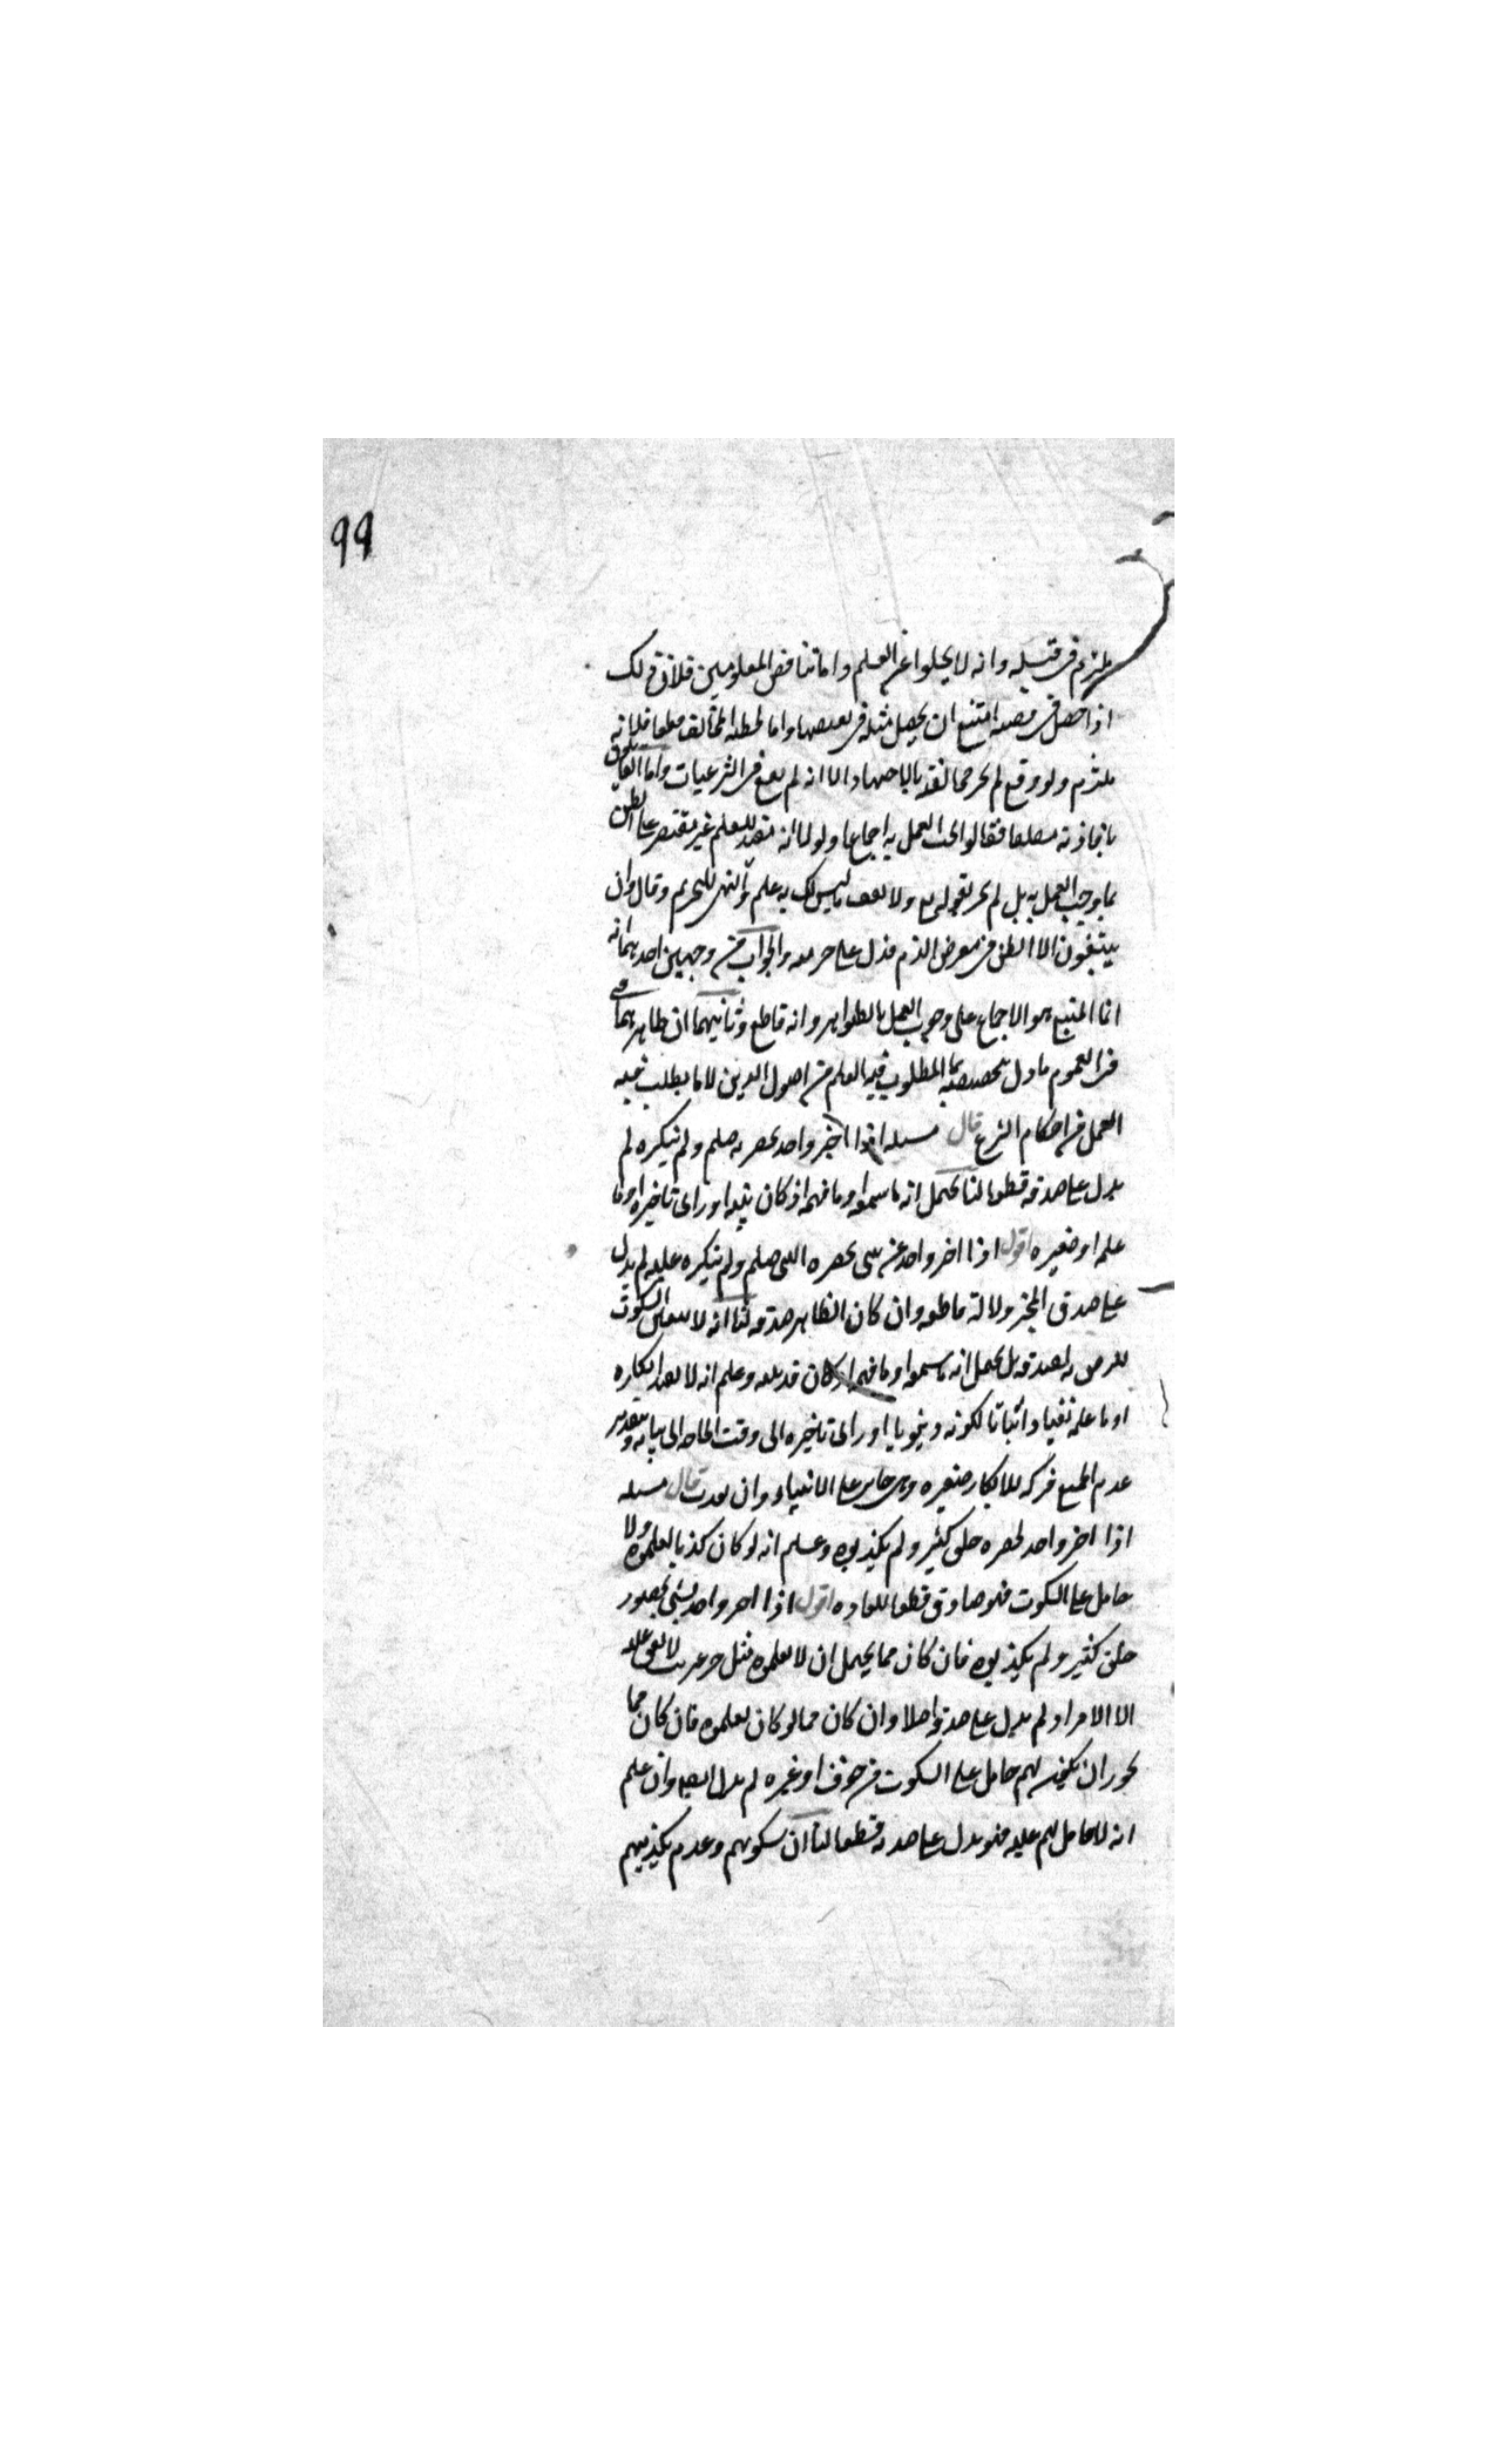 99
ملتزم في قبيله وانه لا يخلوا عن العلم واما تناقض المعلومين فلان ذلك
اذا حصل في قصه امتنع ان يحصل مثله في نقيضها واما تخطئه المخالف قطعا فلانه
ملتزم ولو وقع لم يجز مخالفته بالاجتهاد الا انه لم يقع في الشرعيات واما القائلون
بافادته مطلقا فقالوا يجب العمل به اجماعا ولولا انه مفيد للعلم غير مقتصر على الظن
لما وجب العمل به بل لم يجز لقوله تع ولا تقف ما ليس لك به علم والنهي للتحريم وقال وان
يتبعون الا الظن في معرض الذم فدل على حرمته والجواب من وجهين احدهما انه
انما المتبع هو الاجماع على وجوب العمل بالظواهر وانه قاطع وثانيهما ان ظاهرهما
في العموم مادل بتخصيصه بما المطلوب فيه العلم من اصول الدين لا ما يطلب فيه
العمل من احكام الشرع قال مسله اذا اخبر واحد بحضرته صلعم ولم ينكره لم
يدل على صدقه قطعا لنا يحتمل انه ما سمعه او ما فهمه او كان بينه او راى تاخيره او ما
علمه او صغيره اقول اذا اخبر واحد عن شى بحضره النبى صلعم ولم ينكره عليه لم يدل
على صدق المخبر دلالة قاطعه وان كان الظاهر صدقه لنا انه لا يتعين السكوت
للرضى به لصدقه بل يحتمل انه ما سمعه او ما فهمه او كان قد بينه وعلم انه لا يفيد انكاره
او ما علمه نفيا واثباتا لكونه دنيويا او راى تاخيره الى وقت الحاجه الى بيانه وبتقدير
عدم الجميع فتركه للانكار صغيره وهى جايز على الانبياء وان بعدت قال مسله
اذا اخبر واحد بحضره خلق كثير ولم يكذبوه وعلم انه لو كان كذبا لعلموه ولا
حامل على السكوت فهو صادق قطعا للعاده اقول اذا اخبر واحد بشى بحضور
خلق كثير ولم يكذبوه فان كان مما يحتمل ان لا يعلموه مثل خبر غريب لا يقف عليه
الا الافراد لم يدل على صدقه اصلا وان كان مما لو كان لعلموه فان كان مما
يجوز ان يكون لهم حامل على السكوت من خوف او غيره لم يدل ايضا وان علم
انه لا حامل لهم عليه فهو يدل على صدقه قطعا لنا ان سكوتهم وعدم تكذيبهم